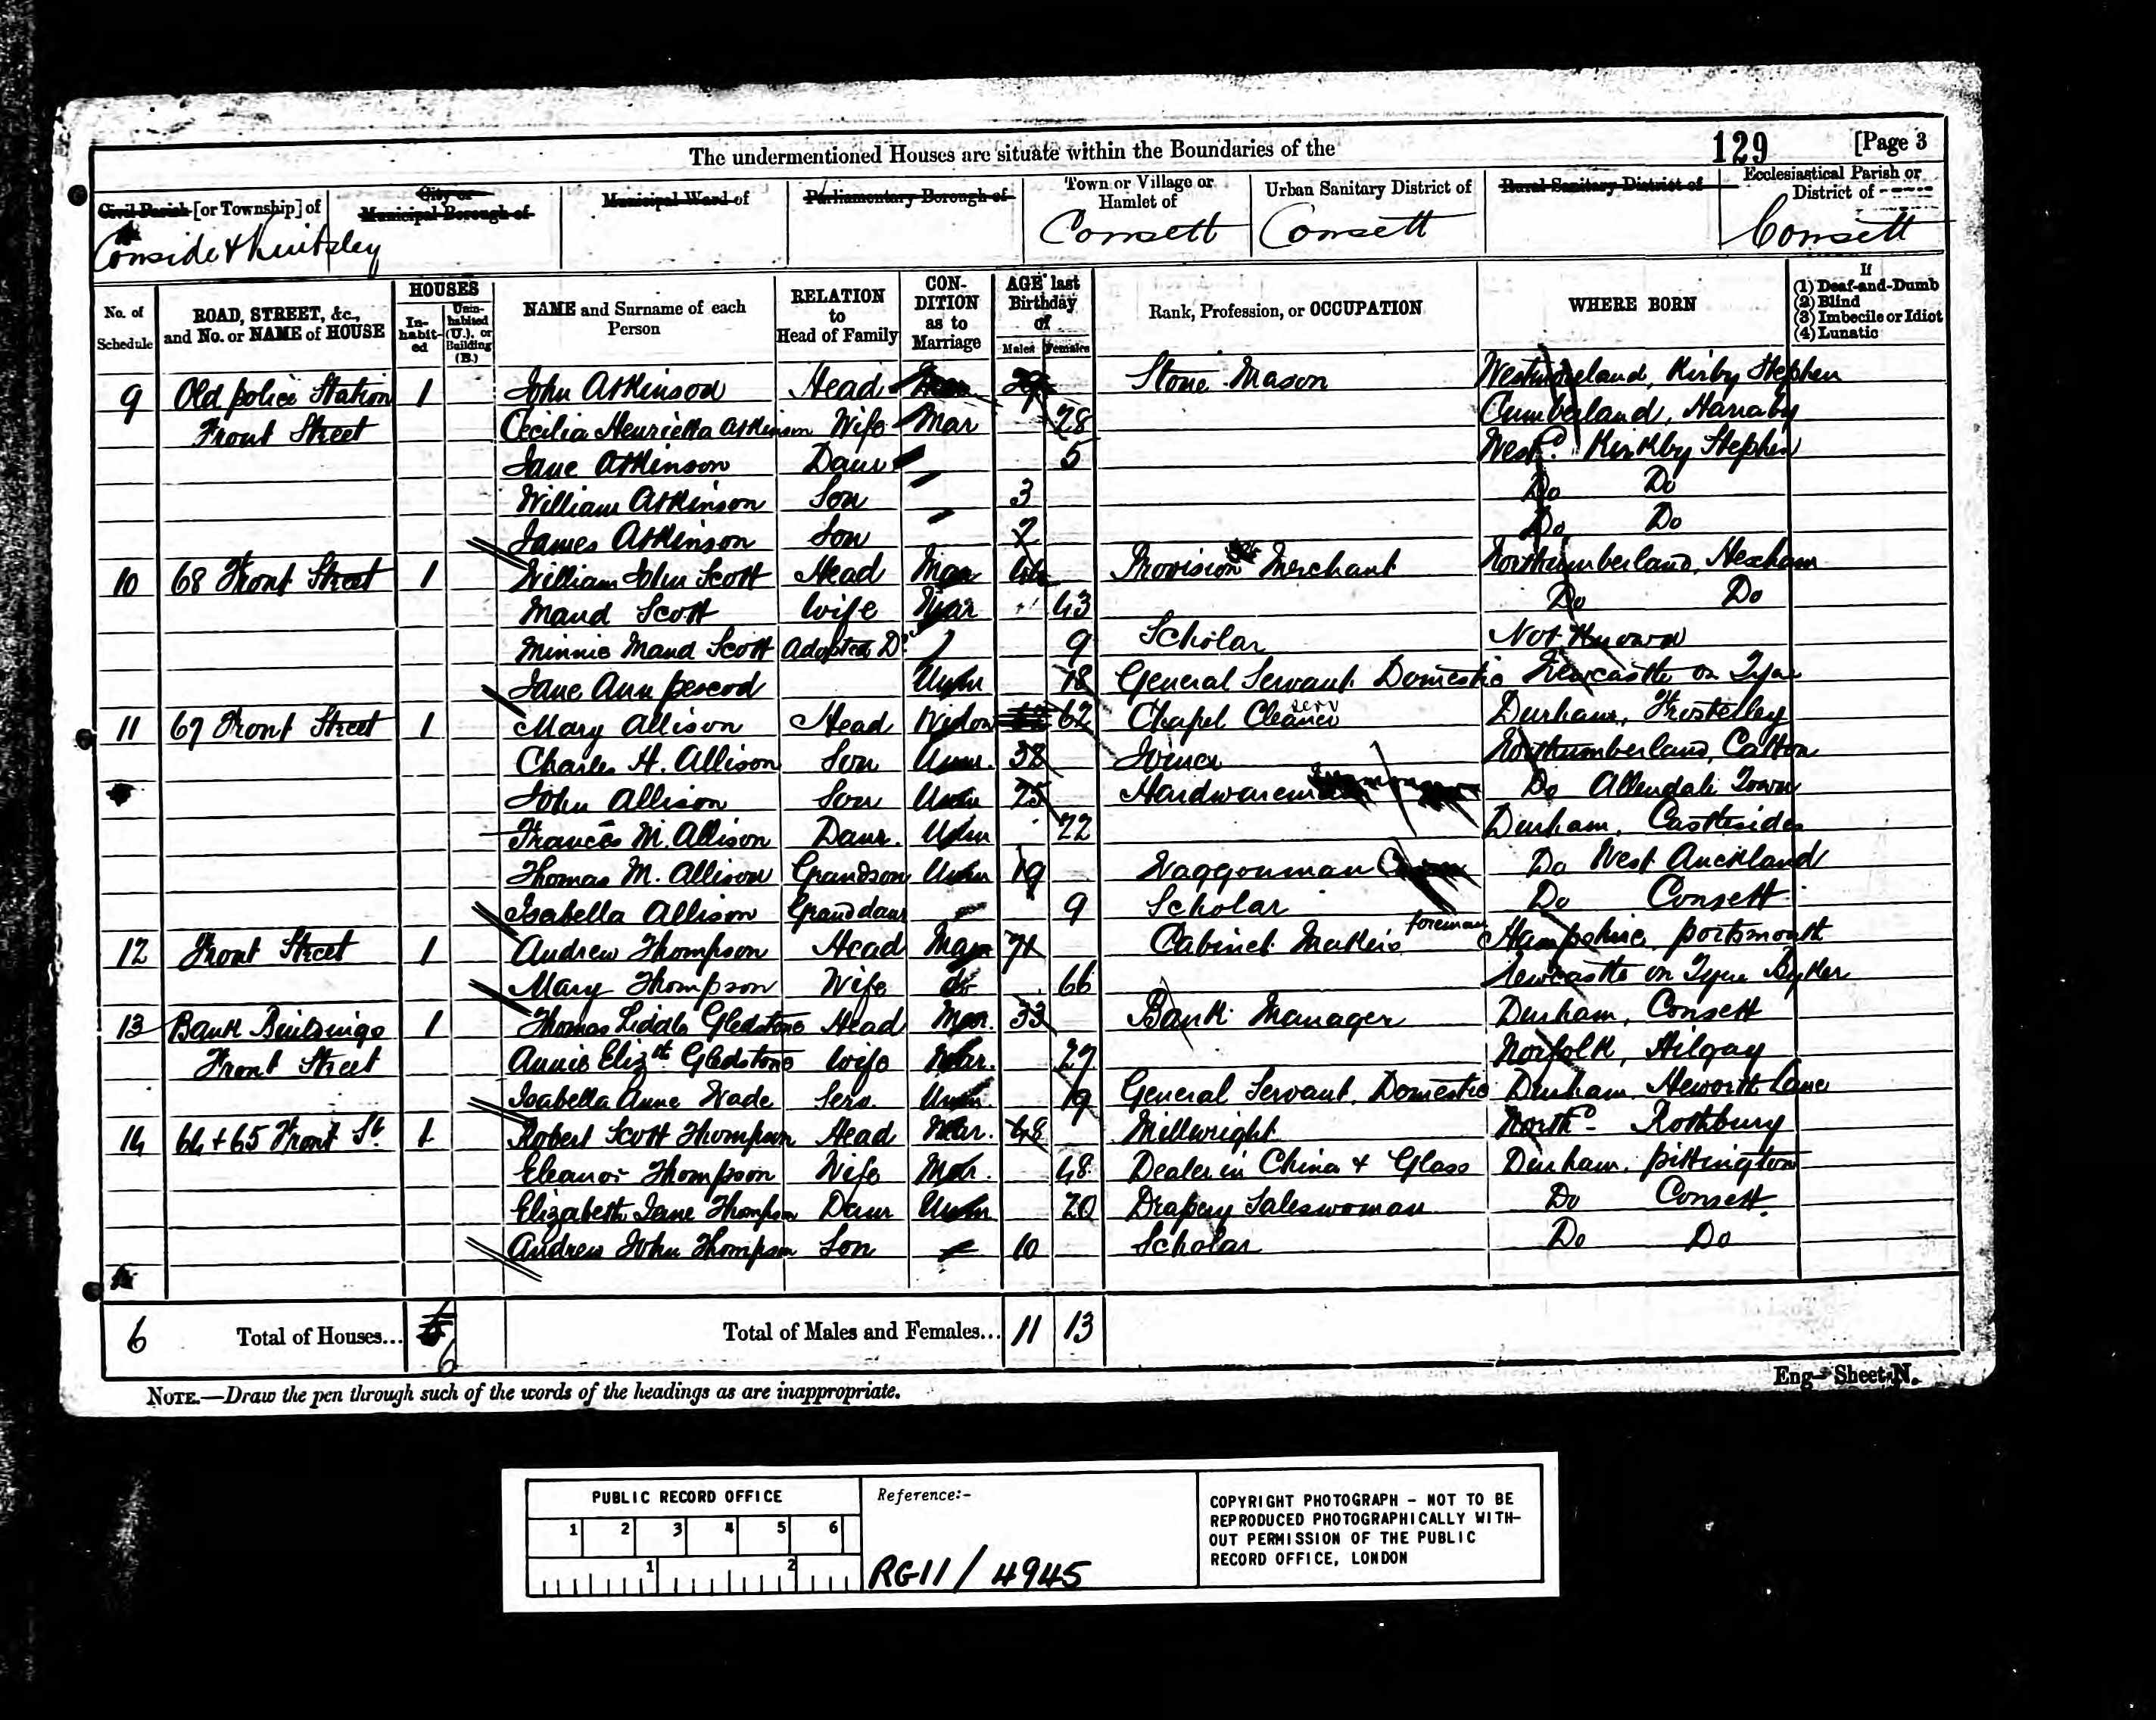 The undermentioned Houses are situate within the Boundaries of the 129 [Page 3
Civil Parish [or Township] of City or Municipal Borough of Municipal Ward of Parliamentary Borough of Town or Village or Hamlet of Urban Sanitary District of Rural Sanitary District of Ecclesiastical Parish or District of
Conside & Knitsley Consett Consett Consett
No. of Schedule ROAD, STREET, &c., and No. or NAME of HOUSE HOUSES Inhabited Uninhabited (U.), or Building (B.) NAME and Surname of each Person RELATION to Head of Family CONDITION as to Marriage AGE last Birthday of Males Females Rank, Profession, or OCCUPATION WHERE BORN If (1) Deaf-and-Dumb (2) Blind (3) Imbecile or Idiot (4) Lunatic
9 Old police Station 1 John Atkinson Head Stone Mason Westmoreland, Kirby Stephen
Front Street Cecilia Henrietta Atkinson Wife Mar 28 Cumberland,
Jane Atkinson Daur 5 Westd. Kirkby Stephen
William Atkinson Son 3 Do Do
James Atkinson Son 2 Do Do
10 68 Front Street 1 William John Scott Head Mar Provision Merchant Northumberland, Hexham
Maud Scott Wife Mar 43 Do Do
Minnie Maud Scott Adopted Dr 9 Scholar Not Known
Jane Ann pescod Unm 18 General Servant Domestic Newcastle on Tyne
11 67 Front Street 1 Mary Allison Head Widow 62 Chapel Cleaner serv Durham, Frosterley
Charles H. Allison Son Unm. 38 Joiner Northumberland, Catton
John Allison Son Unm 25 Hardwareman Do Allendale Town
Frances M. Allison Daur. Unm 22 Durham, Castleside
Thomas M. Allison Grandson Unm 19 Waggonman Do West Auckland
Isabella Allison Grand daur 9 Scholar Do Consett
12 Front Street 1 Andrew Thompson Head Mar 71 Cabinet Makers foreman Hampshire portsmouth
Mary Thompson Wife do 66 Newcastle on Tyne Byker
13 Bank Buildings 1 Thomas Liddle Gledstone Head Mar. 33 Bank Manager Durham, Consett
Front Street Annie Elizth Gledstone Wife Mar. 27 Norfolk, Hilgay
Isabella Anne Wade Serv. Unm. 19 General Servant, Domestic Durham, Heworth Lane
14 64 + 65 Front St. 1 Robert Scott Thompson Head Mar. 48 Millwright Northd. Rothbury
Eleanor Thompson Wife Mar. 48 Dealer in China + Glass Durham, pittington
Elizabeth Jane Thompson Daur Unm 20 Drapery Saleswoman Do Consett.
Andrew John Thompson Son 10 Scholar Do Do
6 Total of Houses... 6 Total of Males and Females... 11 13
NOTE.—Draw the pen through such of the words of the headings as are inappropriate.
Eng—Sheet N.
PUBLIC RECORD OFFICE
1 2 3 4 5 6
1 2
Reference:-
RG11 / 4945
COPYRIGHT PHOTOGRAPH – NOT TO BE
REPRODUCED PHOTOGRAPHICALLY WITH-
OUT PERMISSION OF THE PUBLIC
RECORD OFFICE, LONDON